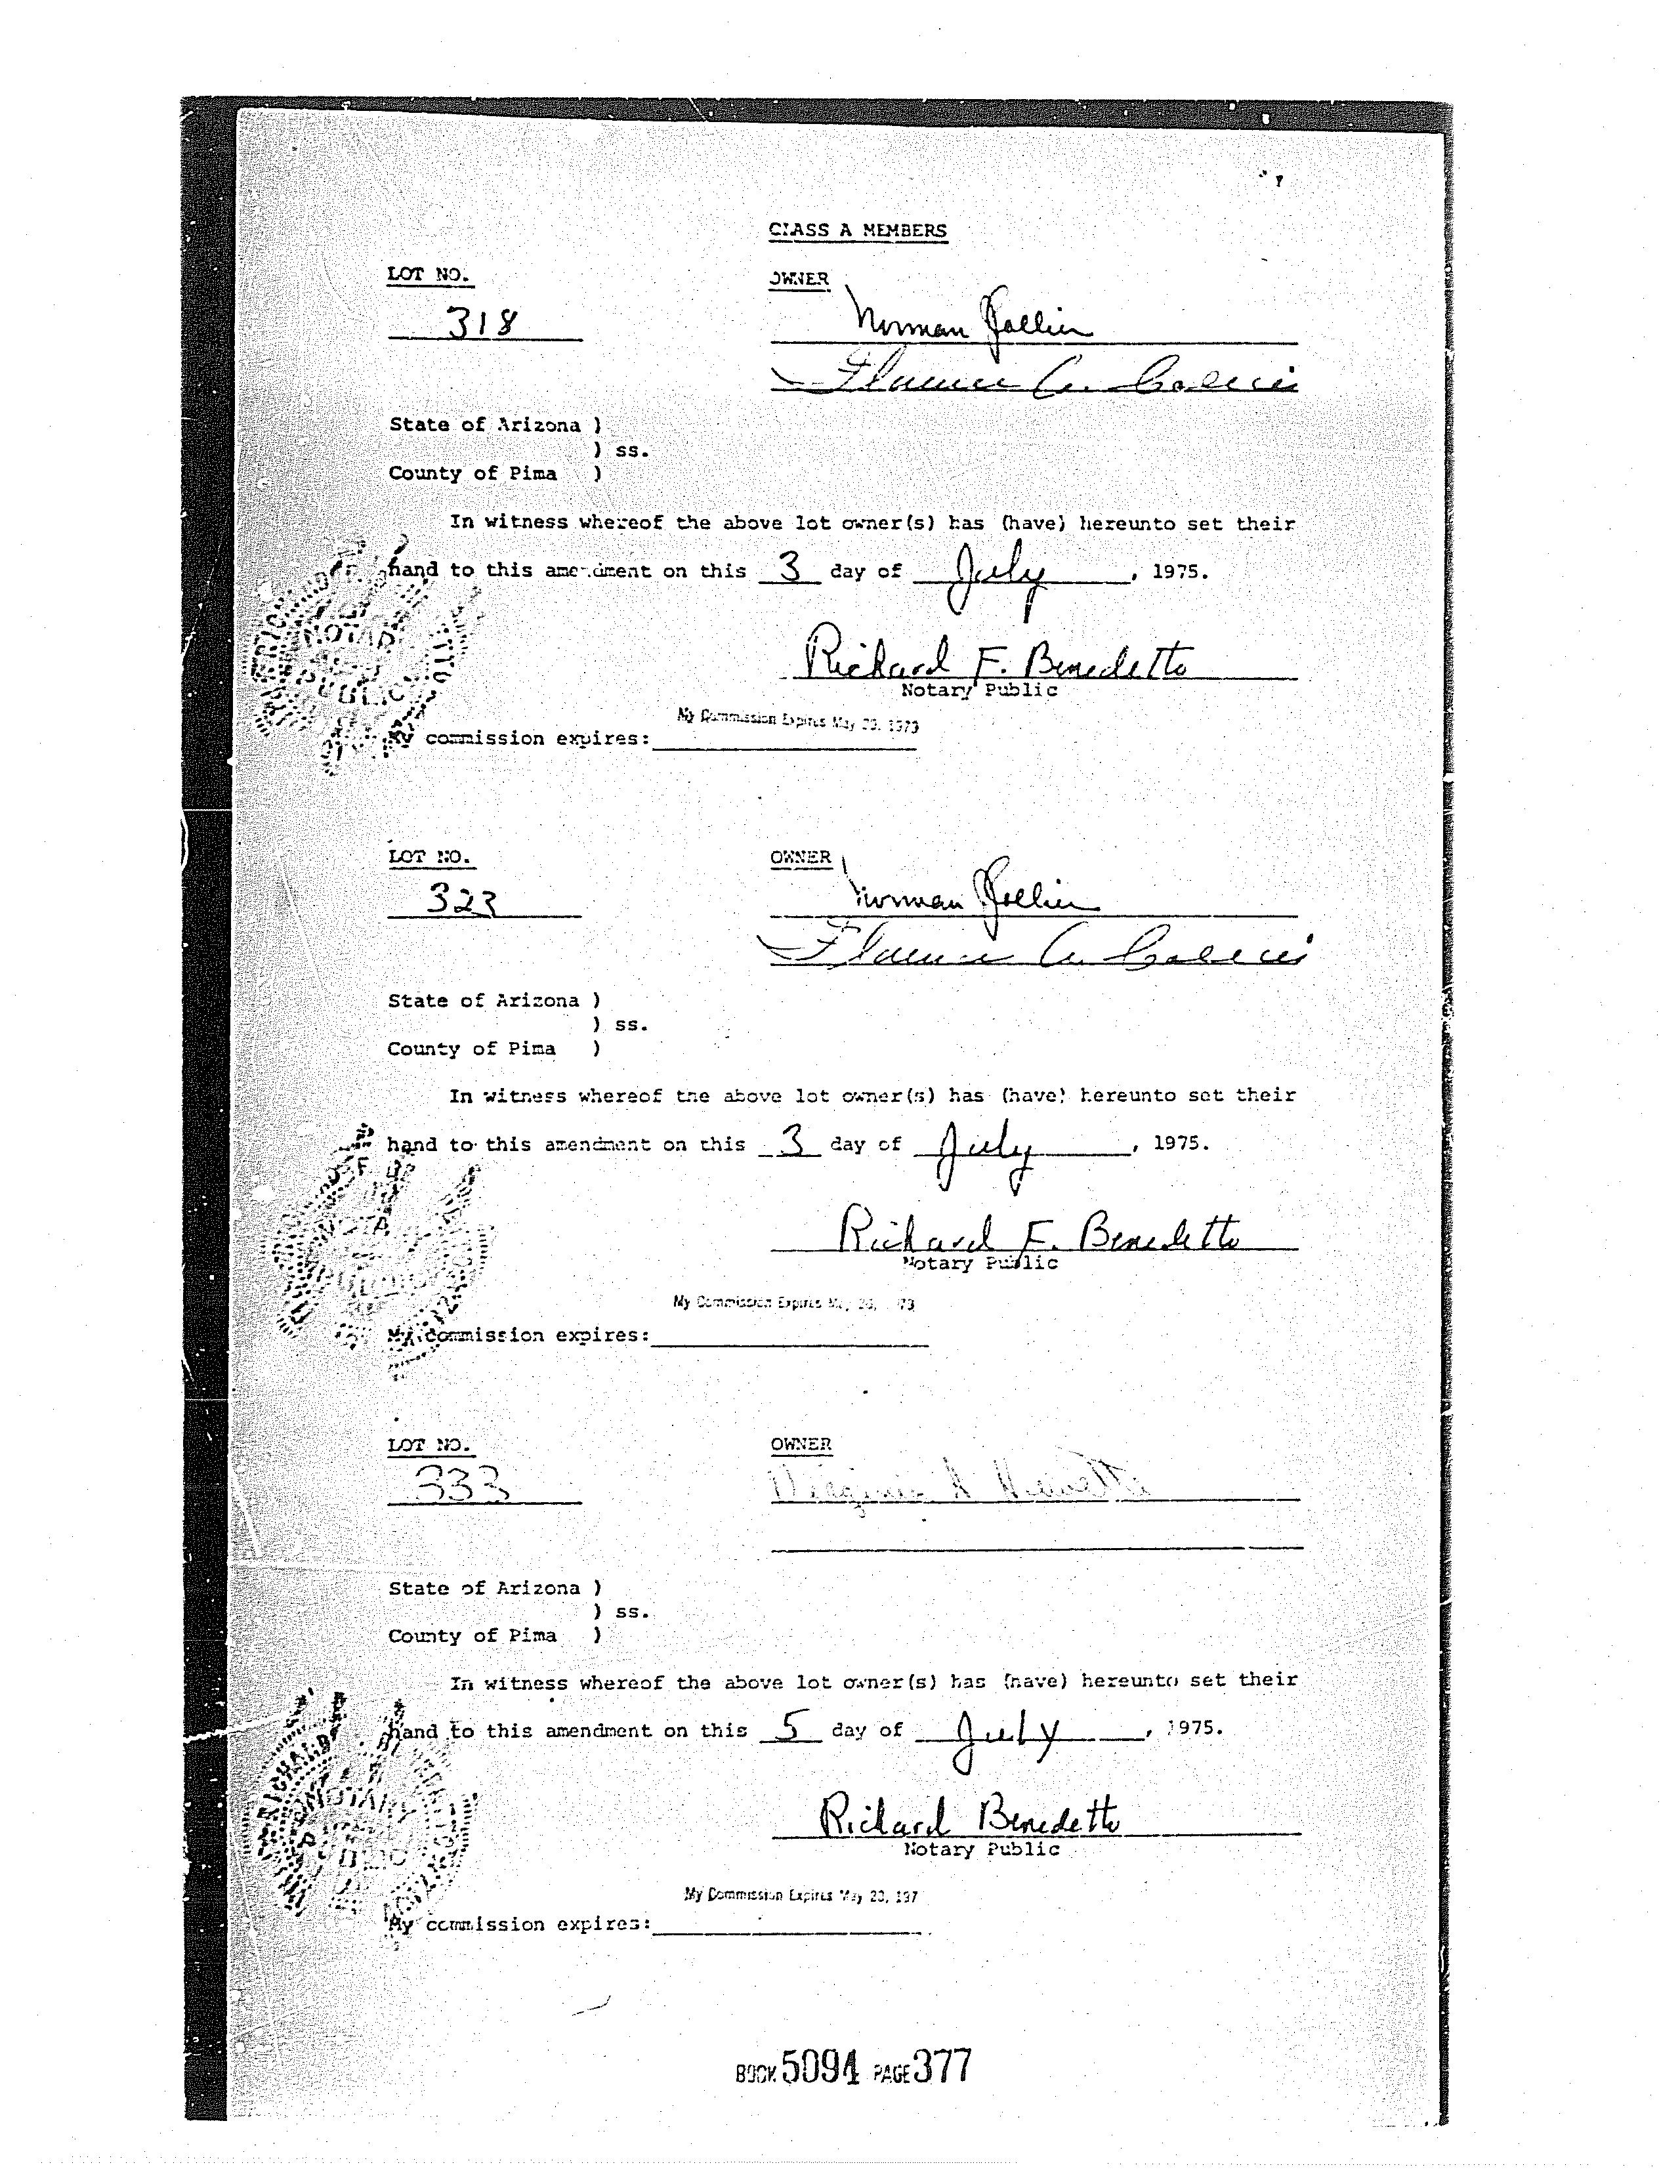 CLASS A MEMBERS
LOT NO. OWNER
318 Norman
State of Arizona )
) ss.
County of Pima )
In witness whereof the above lot owner(s) has (have) hereunto set their
hand to this amendment on this 3 day of July, 1975.
Richard F. Benedetto
Notary Public
My Commission Expires May
My commission expires:
LOT NO. OWNER
323 Norman
State of Arizona )
) ss.
County of Pima )
In witness whereof the above lot owner(s) has (have) hereunto set their
hand to this amendment on this 3 day of July, 1975.
Richard F. Benedetto
Notary Public
My Commission Expires
My commission expires:
LOT NO. OWNER
333 Virginia
State of Arizona )
) ss.
County of Pima )
In witness whereof the above lot owner(s) has (have) hereunto set their
hand to this amendment on this 5 day of July, 1975.
Richard Benedetto
Notary Public
My Commission Expires May
My commission expires:
BOOK 5094 PAGE 377